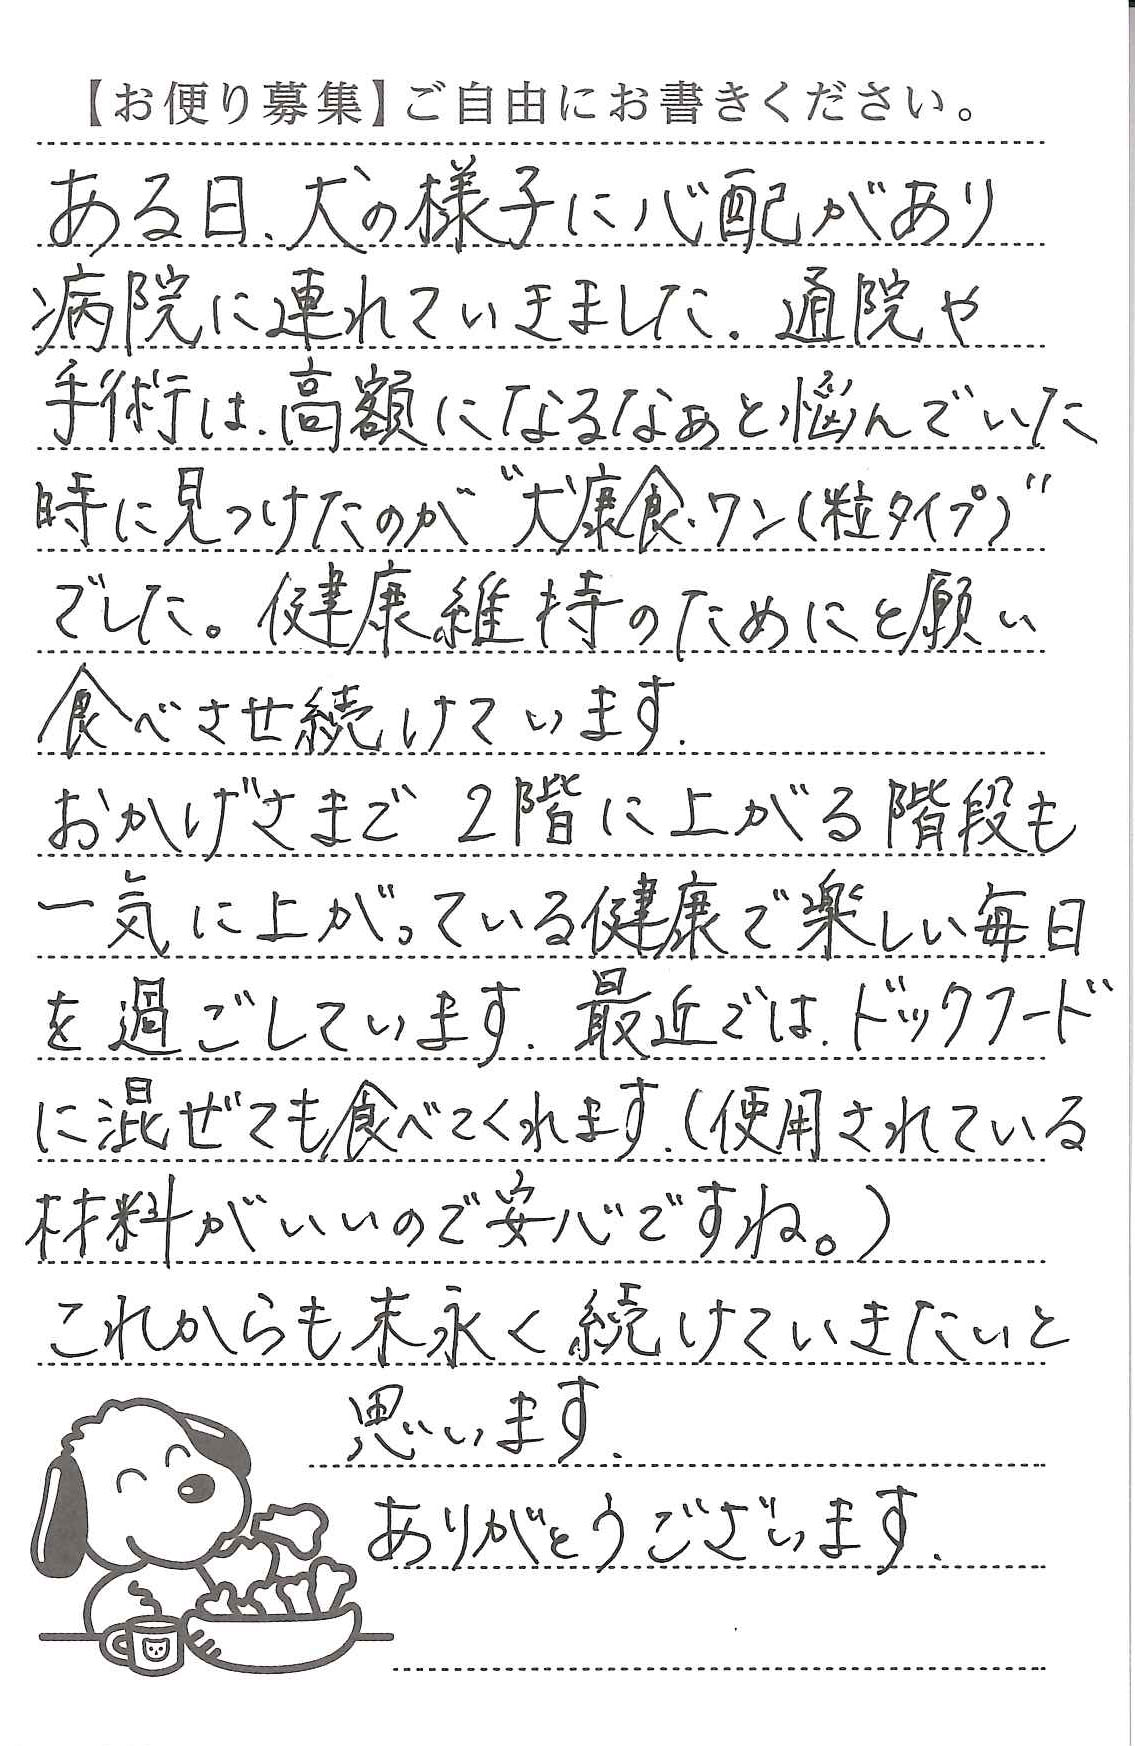 【お便り募集】ご自由にお書きください。
ある日、犬の様子に心配があり
病院に連れていきました。通院や
手術は、高額になるなぁと悩んでいた
時に見つけたのが"犬康食・ワン(粒タイプ)"
でした。健康維持のためにと願い
食べさせ続けています.
おかげさまで 2階に上がる階段も
一気に上がっている健康で楽しい毎日
を過ごしています. 最近では、ドックフード
に混ぜても食べてくれます.(使用されている
材料がいいので安心ですね。)
これからも末永く続けていきたいと
思います.
ありがとうございます.